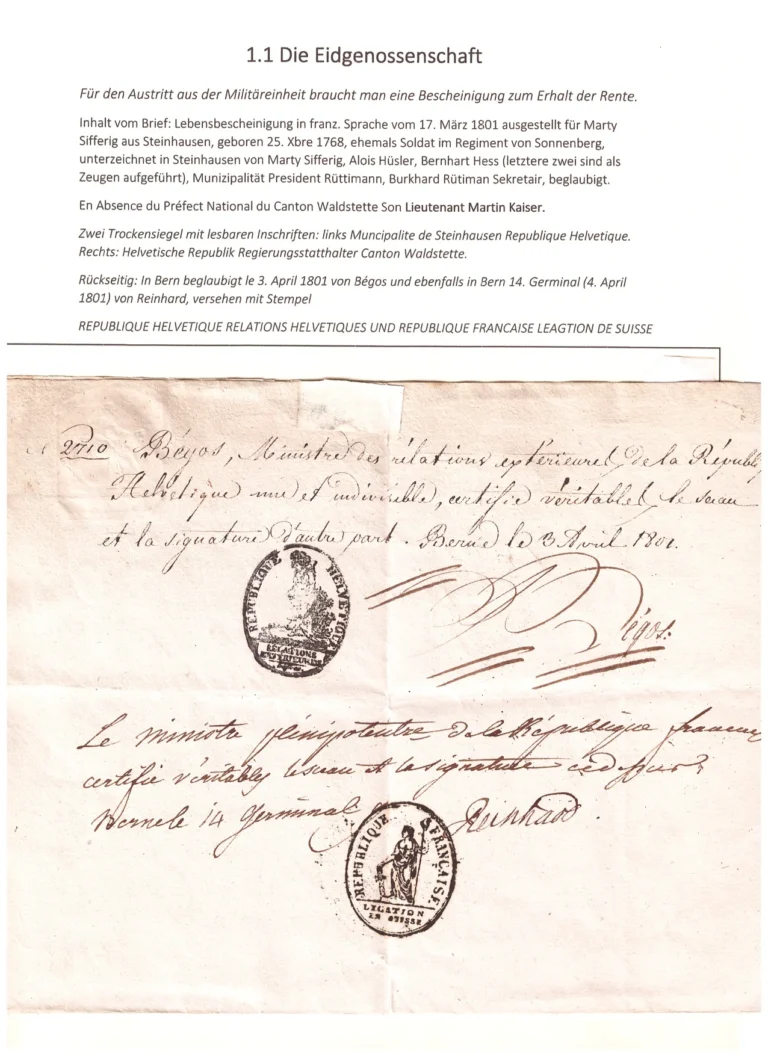 1.1 Die Eidgenossenschaft
Für den Austritt aus der Militäreinheit braucht man eine Bescheinigung zum Erhalt der Rente.
Inhalt vom Brief: Lebensbescheinigung in franz. Sprache vom 17. März 1801 ausgestellt für Marty
Sifferig aus Steinhausen, geboren 25. Xbre 1768, ehemals Soldat im Regiment von Sonnenberg,
unterzeichnet in Steinhausen von Marty Sifferig, Alois Hüsler, Bernhart Hess (letztere zwei sind als
Zeugen aufgeführt), Munizipalität President Rüttimann, Burkhard Rütiman Sekretair, beglaubigt.
En Absence du Préfect National du Canton Waldstette Son Lieutenant Martin Kaiser.
Zwei Trockensiegel mit lesbaren Inschriften: links Muncipalite de Steinhausen Republique Helvetique.
Rechts: Helvetische Republik Regierungsstatthalter Canton Waldstette.
Rückseitig: In Bern beglaubigt le 3. April 1801 von Bégos und ebenfalls in Bern 14. Germinal (4. April
1801) von Reinhard, versehen mit Stempel
REPUBLIQUE HELVETIQUE RELATIONS HELVETIQUES UND REPUBLIQUE FRANCAISE LEAGTION DE SUISSE
2710 Bégos, Ministre des rélations extérieures de la Républ
Helvétique une et indivisible, certifie véritables le sceau
et la signature d'autre part. Berne le 3 Avril 1801.
REPUBLIQUE HELVETIQUE
RELATIONS
EXTERIEURES
Bégos.
Le ministre plénipotentre de la République
certifie véritables le sceau et la signature
Berne le 14 Germinal Reinhard.
REPUBLIQUE FRANÇAISE
LEGATION
EN SUISSE